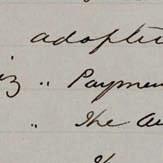 adopti
iz " Paymen
" The Au